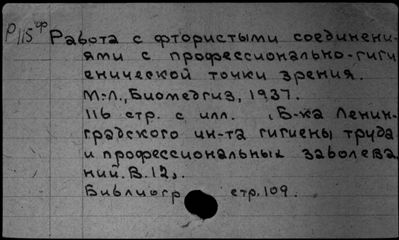 Р115 ф Работа с фтористыми соединени-
ями с профессионально-гиги
енической точки зрения.
М.-Л., Биомедгиз, 1937.
116 стр. с илл. „Б-ка Ленин-
градского ин-та гигиены труда
и профессиональных заболева
ний. В. 12".
Библиогр стр. 109.